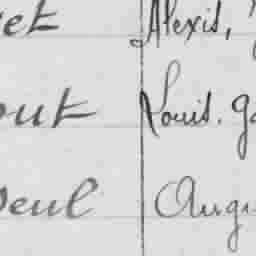 et Alexis,
out Louis. Ga
Deul Augu